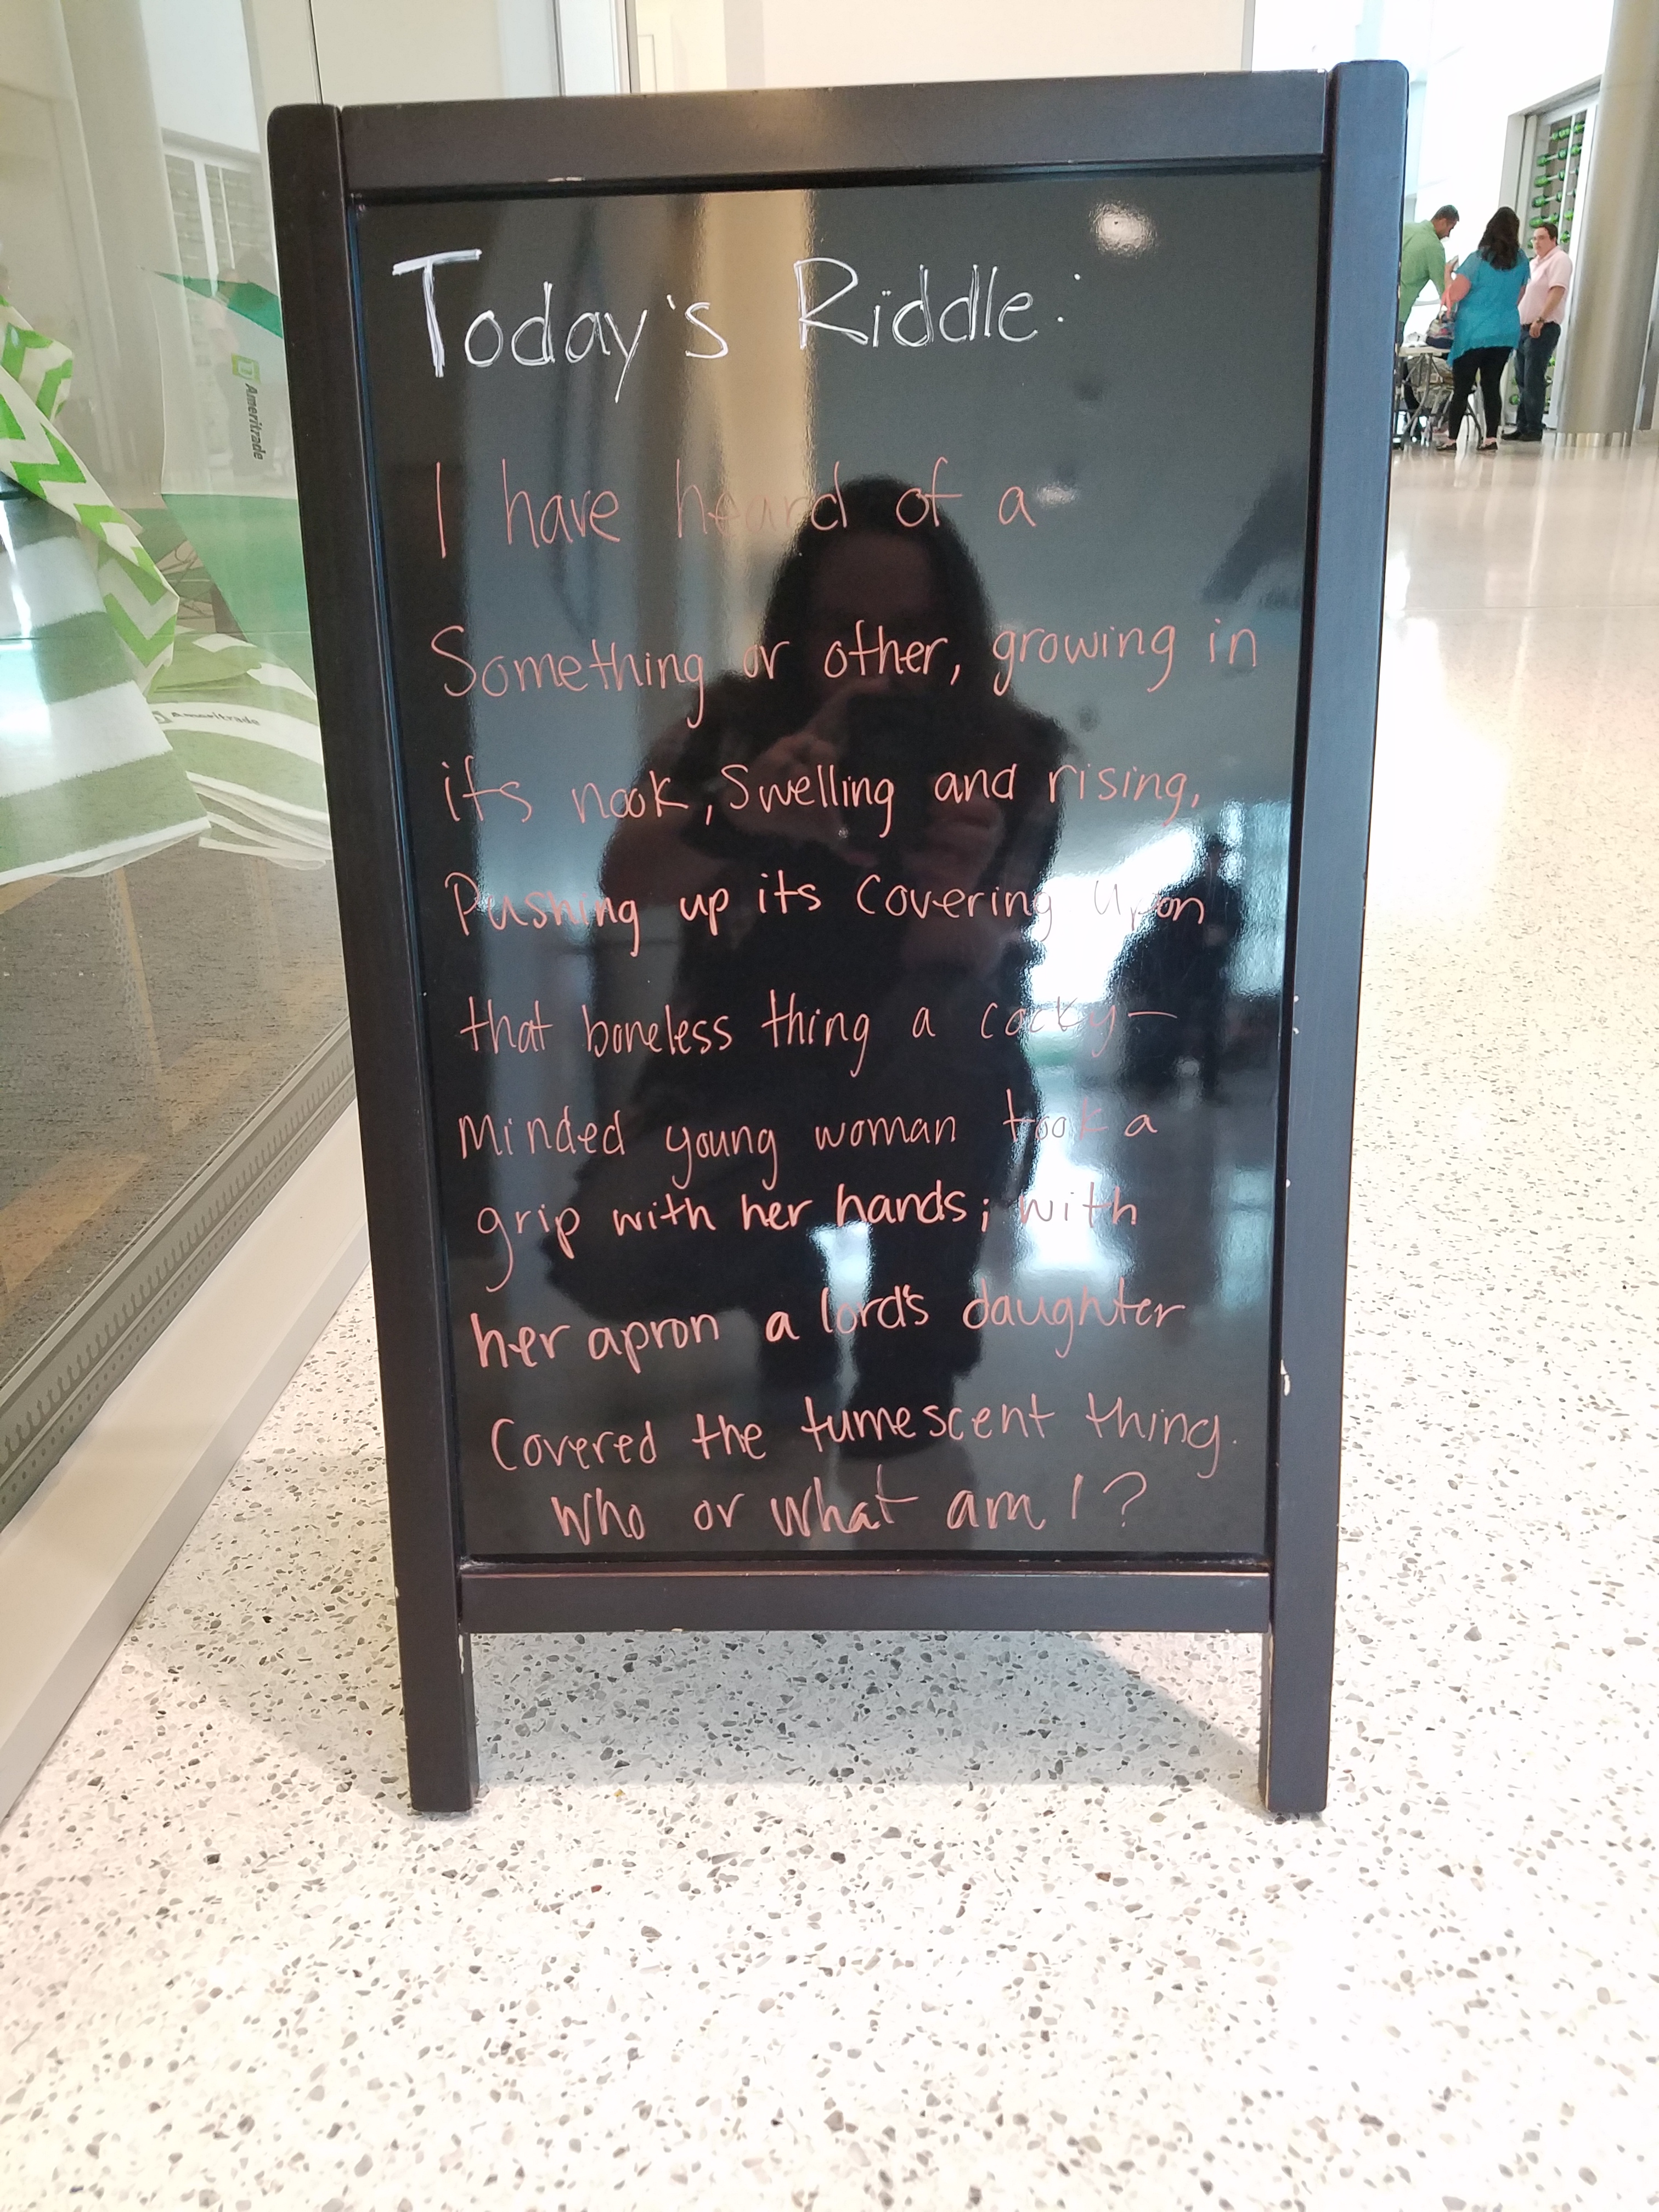 Today's Riddle:
I have heard of a
Something or other, growing in
its nook, Swelling and rising,
Pushing up its covering upon
that boneless thing a cocky-
minded young woman took a
grip with her hands; with
her apron a lord's daughter
Covered the tumescent thing.
Who or what am I?
Ameritrade
Ameritrade